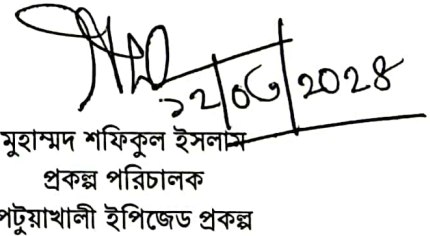 ১২/০৩/২০২৪
মুহাম্মদ শফিকুল ইসলাম
প্রকল্প পরিচালক
পটুয়াখালী ইপিজেড প্রকল্প